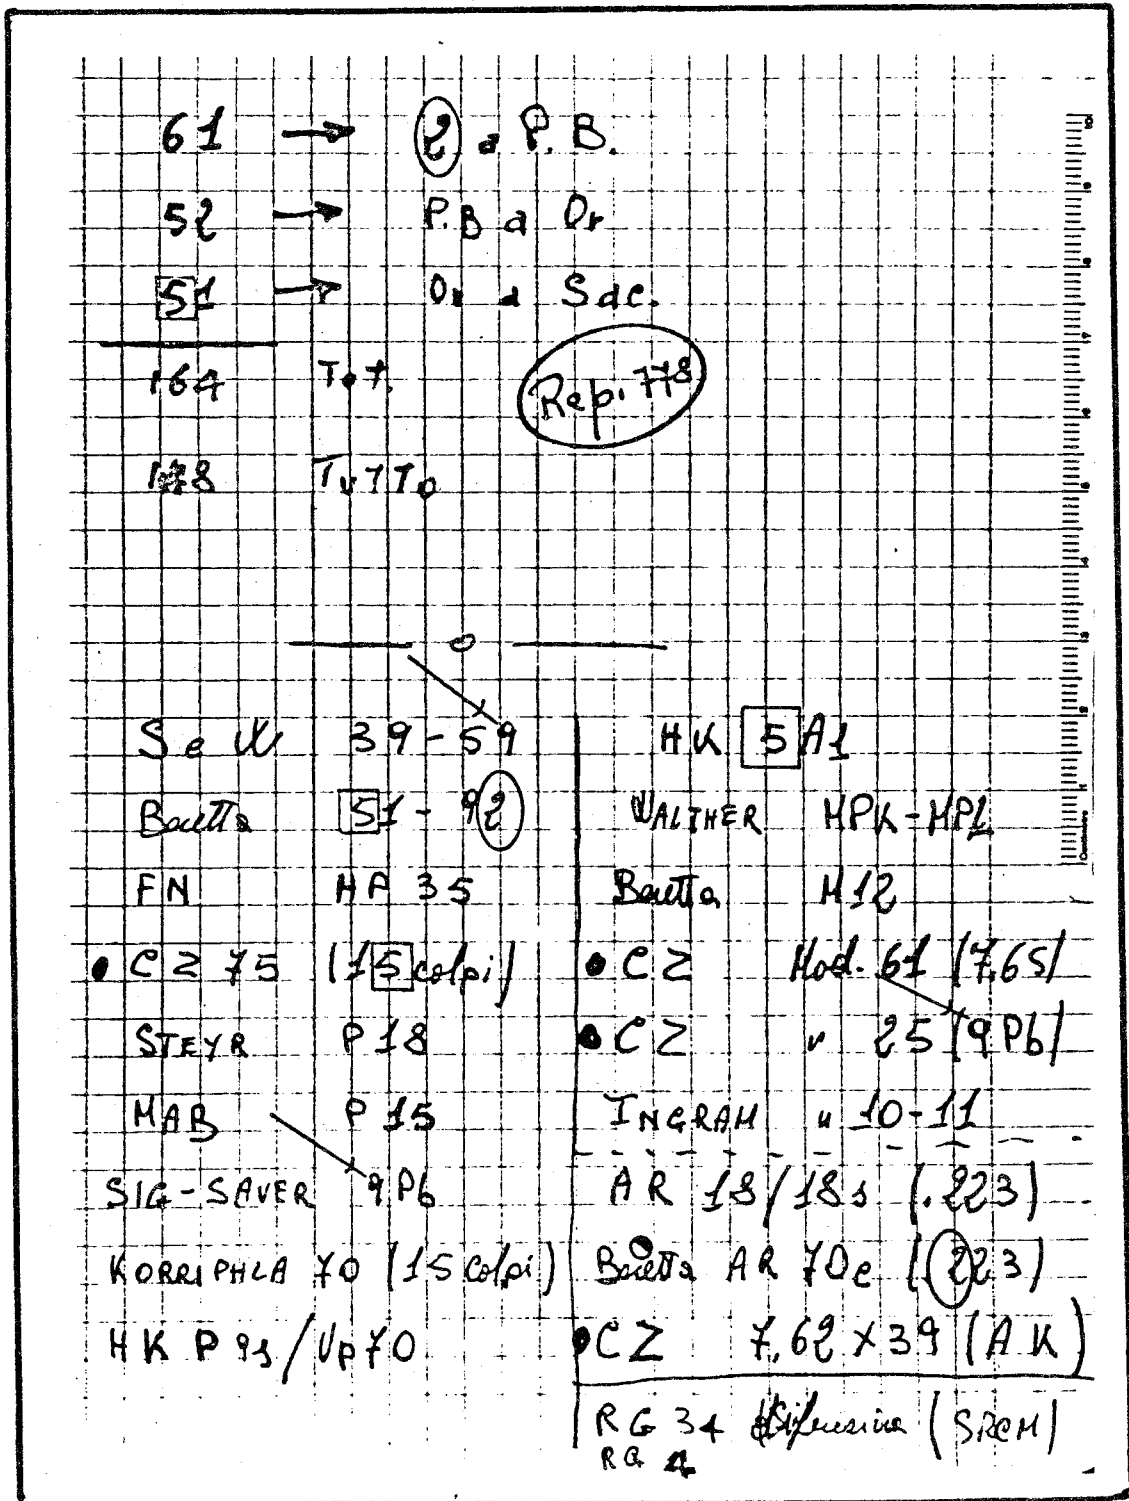 61 → 2 a P. B.
52 → P.B a Or
51 → Or a Sac.
164 Tot.
Rep. 778
TuTTo
S e W 39-59
Beretta 51-92
FN HP 35
• CZ 75 (15 colpi)
STEYR P18
MAB P15
SIG-SAVER 9Pb
KORRIPHLA 70 (15 colpi)
HK P9s/Vp70
HK 5A1
WALTHER MPK-MPL
Beretta M12
• CZ Mod. 61 (7,65)
• CZ " 25 (9Pb)
INGRAM " 10-11
AR 18/18s (.223)
Beretta AR 70c (223)
• CZ 7,62x39 (AK)
RG 34 difensiva (SRCM)
RG 4
0 1 2 3 4 5 6 7 8 9 10